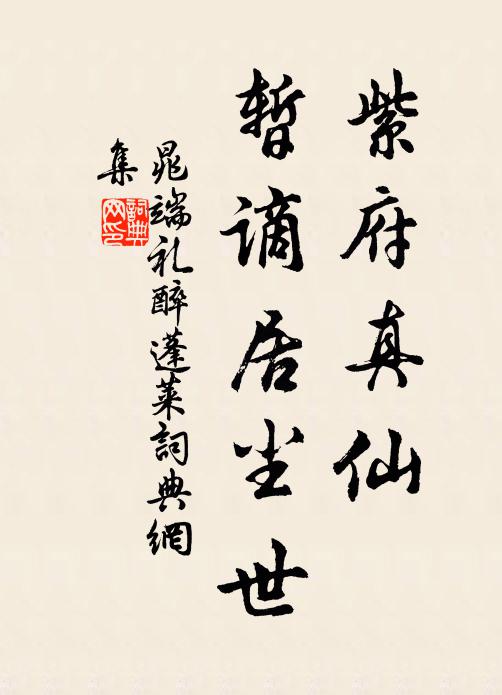 紫府真仙
暂谪居尘世
晁端礼醉蓬莱詞典網
集
詞典
网印